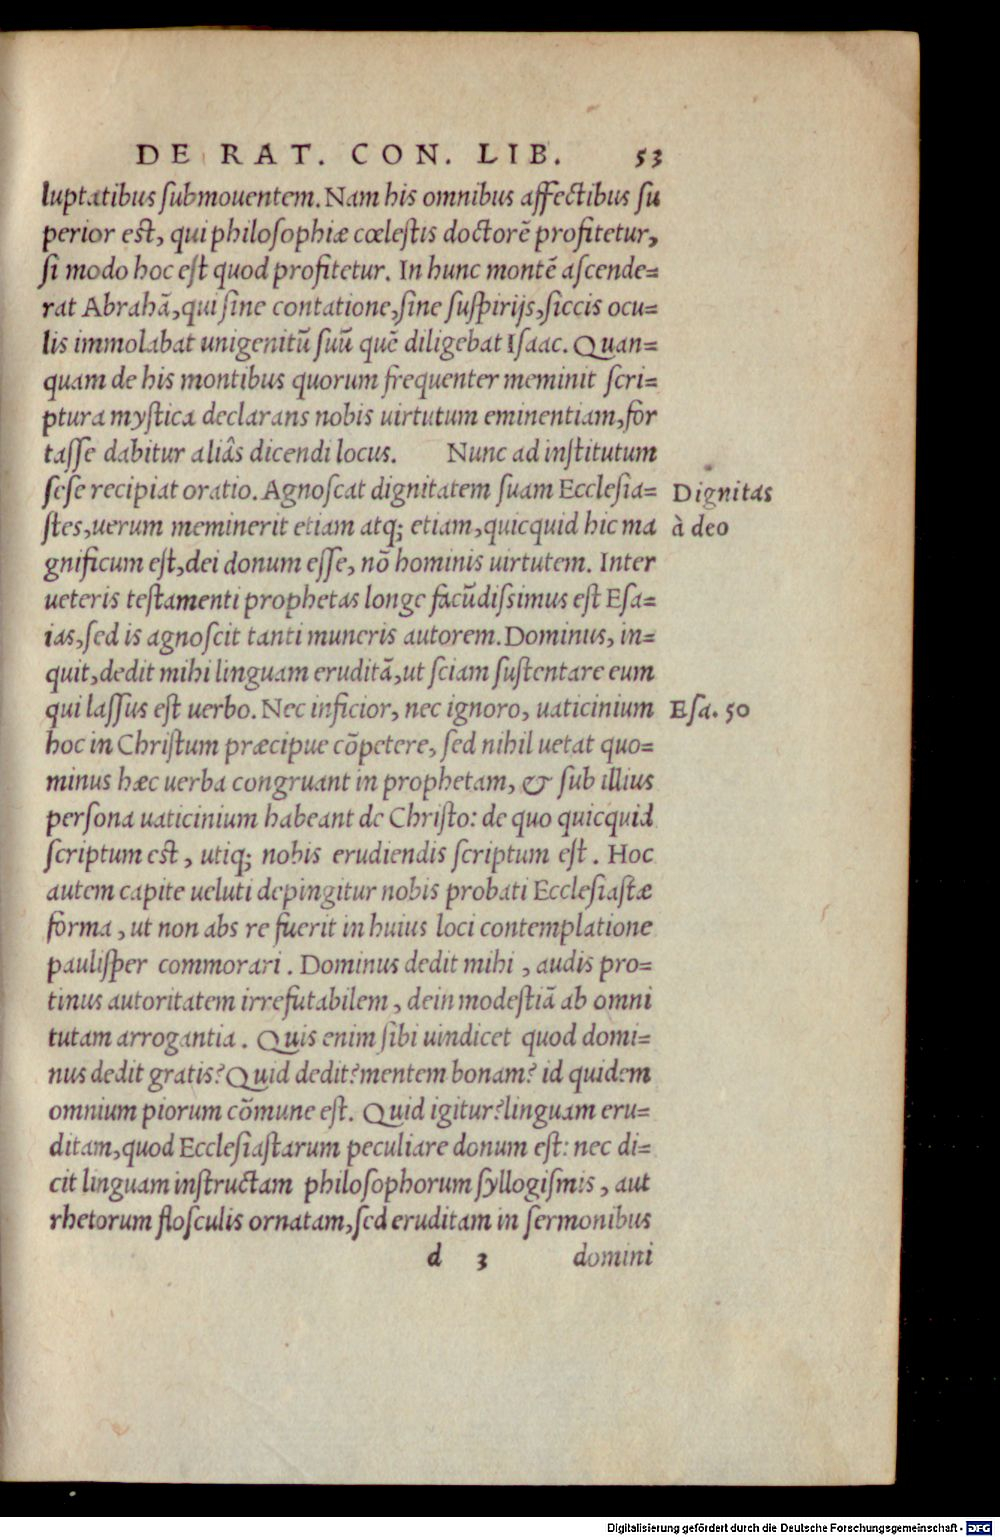 DE RAT. CON. LIB. 53
luptatibus ſubmouentem. Nam his omnibus affectibus ſu
perior est, qui philoſophiæ cœleſtis doctorē profitetur,
ſi modo hoc eſt quod profitetur. In hunc montē aſcende=
rat Abrahā, qui ſine contatione, ſine ſuſpirijs, ſiccis ocu=
lis immolabat unigenitū ſuū quē diligebat Iſaac. Quan=
quam de his montibus quorum frequenter meminit ſcri=
ptura myſtica declarans nobis uirtutum eminentiam, for
taſſe dabitur aliâs dicendi locus. Nunc ad inſtitutum
ſeſe recipiat oratio. Agnoſcat dignitatem ſuam Eccleſia= Dignitas
ſtes, uerum meminerit etiam atq; etiam, quicquid hic ma à deo
gnificum eſt, dei donum eſſe, nō hominis uirtutem. Inter
ueteris teſtamenti prophetas longe facūdiſsimus eſt Eſa=
ias, ſed is agnoſcit tanti muneris autorem. Dominus, in=
quit, dedit mihi linguam eruditā, ut ſciam ſuſtentare eum
qui laſſus eſt uerbo. Nec inficior, nec ignoro, uaticinium Eſa. 50
hoc in Chriſtum præcipue cōpetere, ſed nihil uetat quo=
minus hæc uerba congruant in prophetam, & ſub illius
perſona uaticinium habeant de Chriſto: de quo quicquid
ſcriptum est, utiq; nobis erudiendis ſcriptum eſt. Hoc
autem capite ueluti depingitur nobis probati Eccleſiaſtæ
forma, ut non abs re fuerit in huius loci contemplatione
pauliſper commorari. Dominus dedit mihi, audis pro=
tinus autoritatem irrefutabilem, dein modeſtiā ab omni
tutam arrogantia. Quis enim ſibi uindicet quod domi=
nus dedit gratis? Quid dedit? mentem bonam? id quidem
omnium piorum cōmune eſt. Quid igitur? linguam eru=
ditam, quod Eccleſiaſtarum peculiare donum eſt: nec di=
cit linguam inſtructam philoſophorum ſyllogiſmis, aut
rhetorum floſculis ornatam, ſed eruditam in ſermonibus
d 3 domini
Digitalisierung gefördert durch die Deutsche Forschungsgemeinschaft - DFG